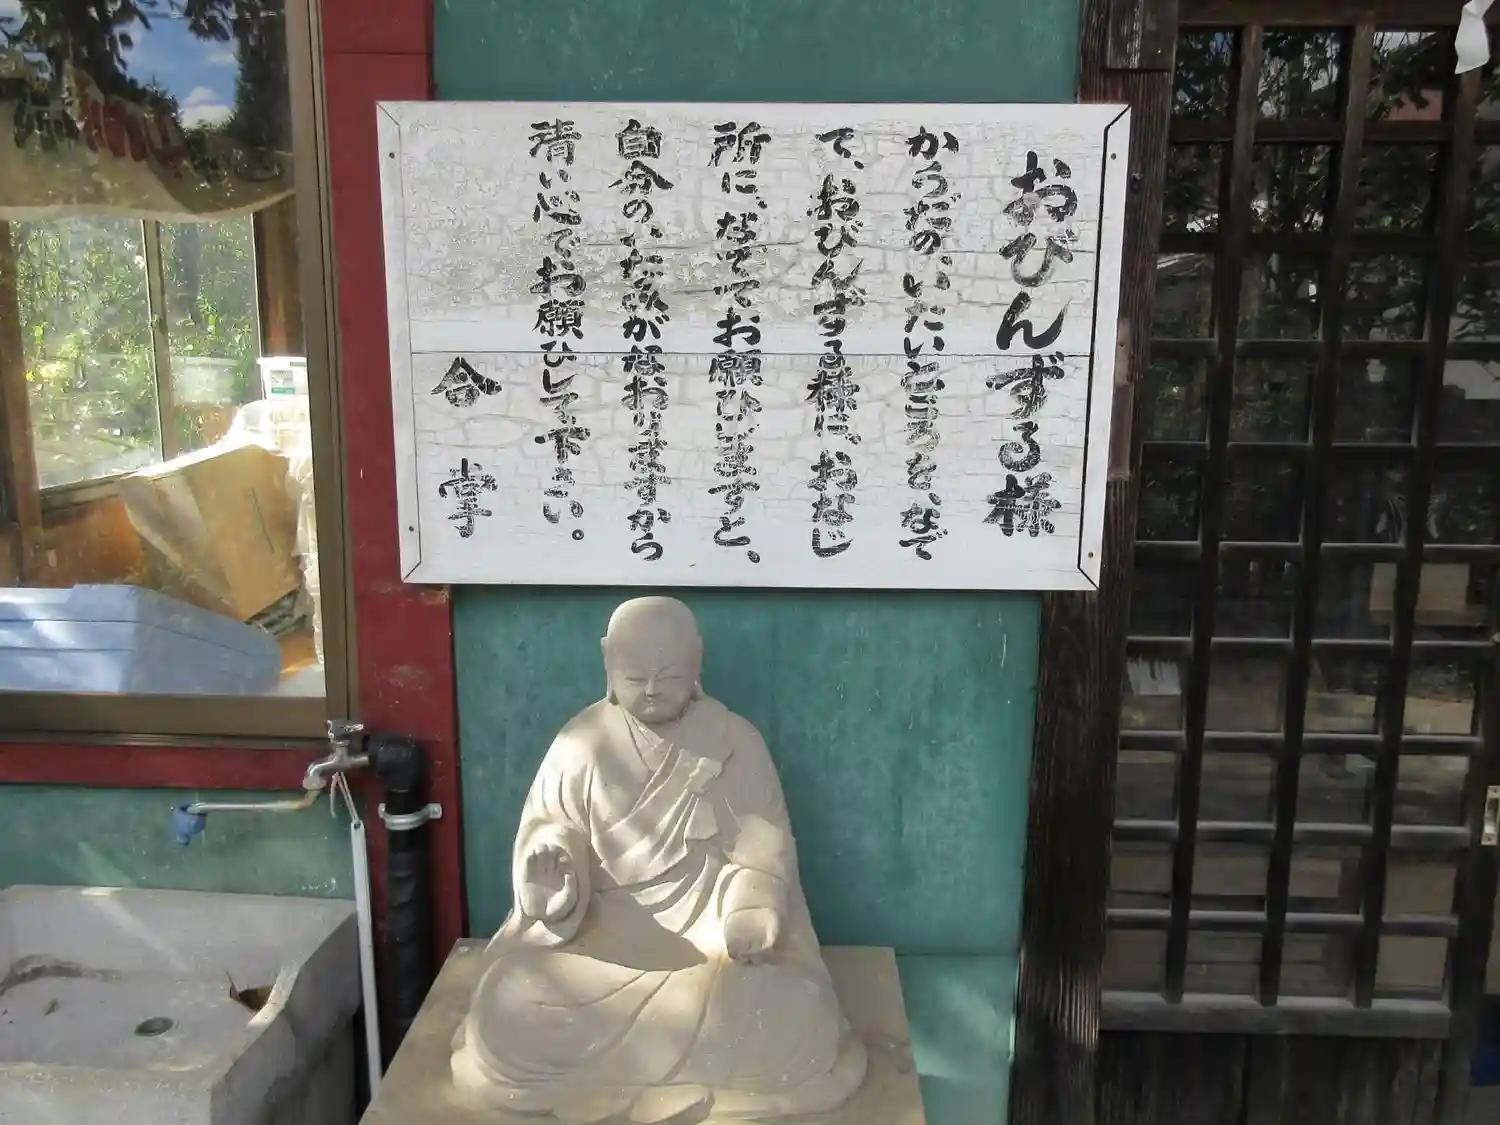 おびんずる様
からだの、いたいところを、なで
て、おびんずる様に、おなじ
所に、なでてお願ひしますと、
自分の、いたみがなおりますから
清い心でお願ひして下さい。
合掌